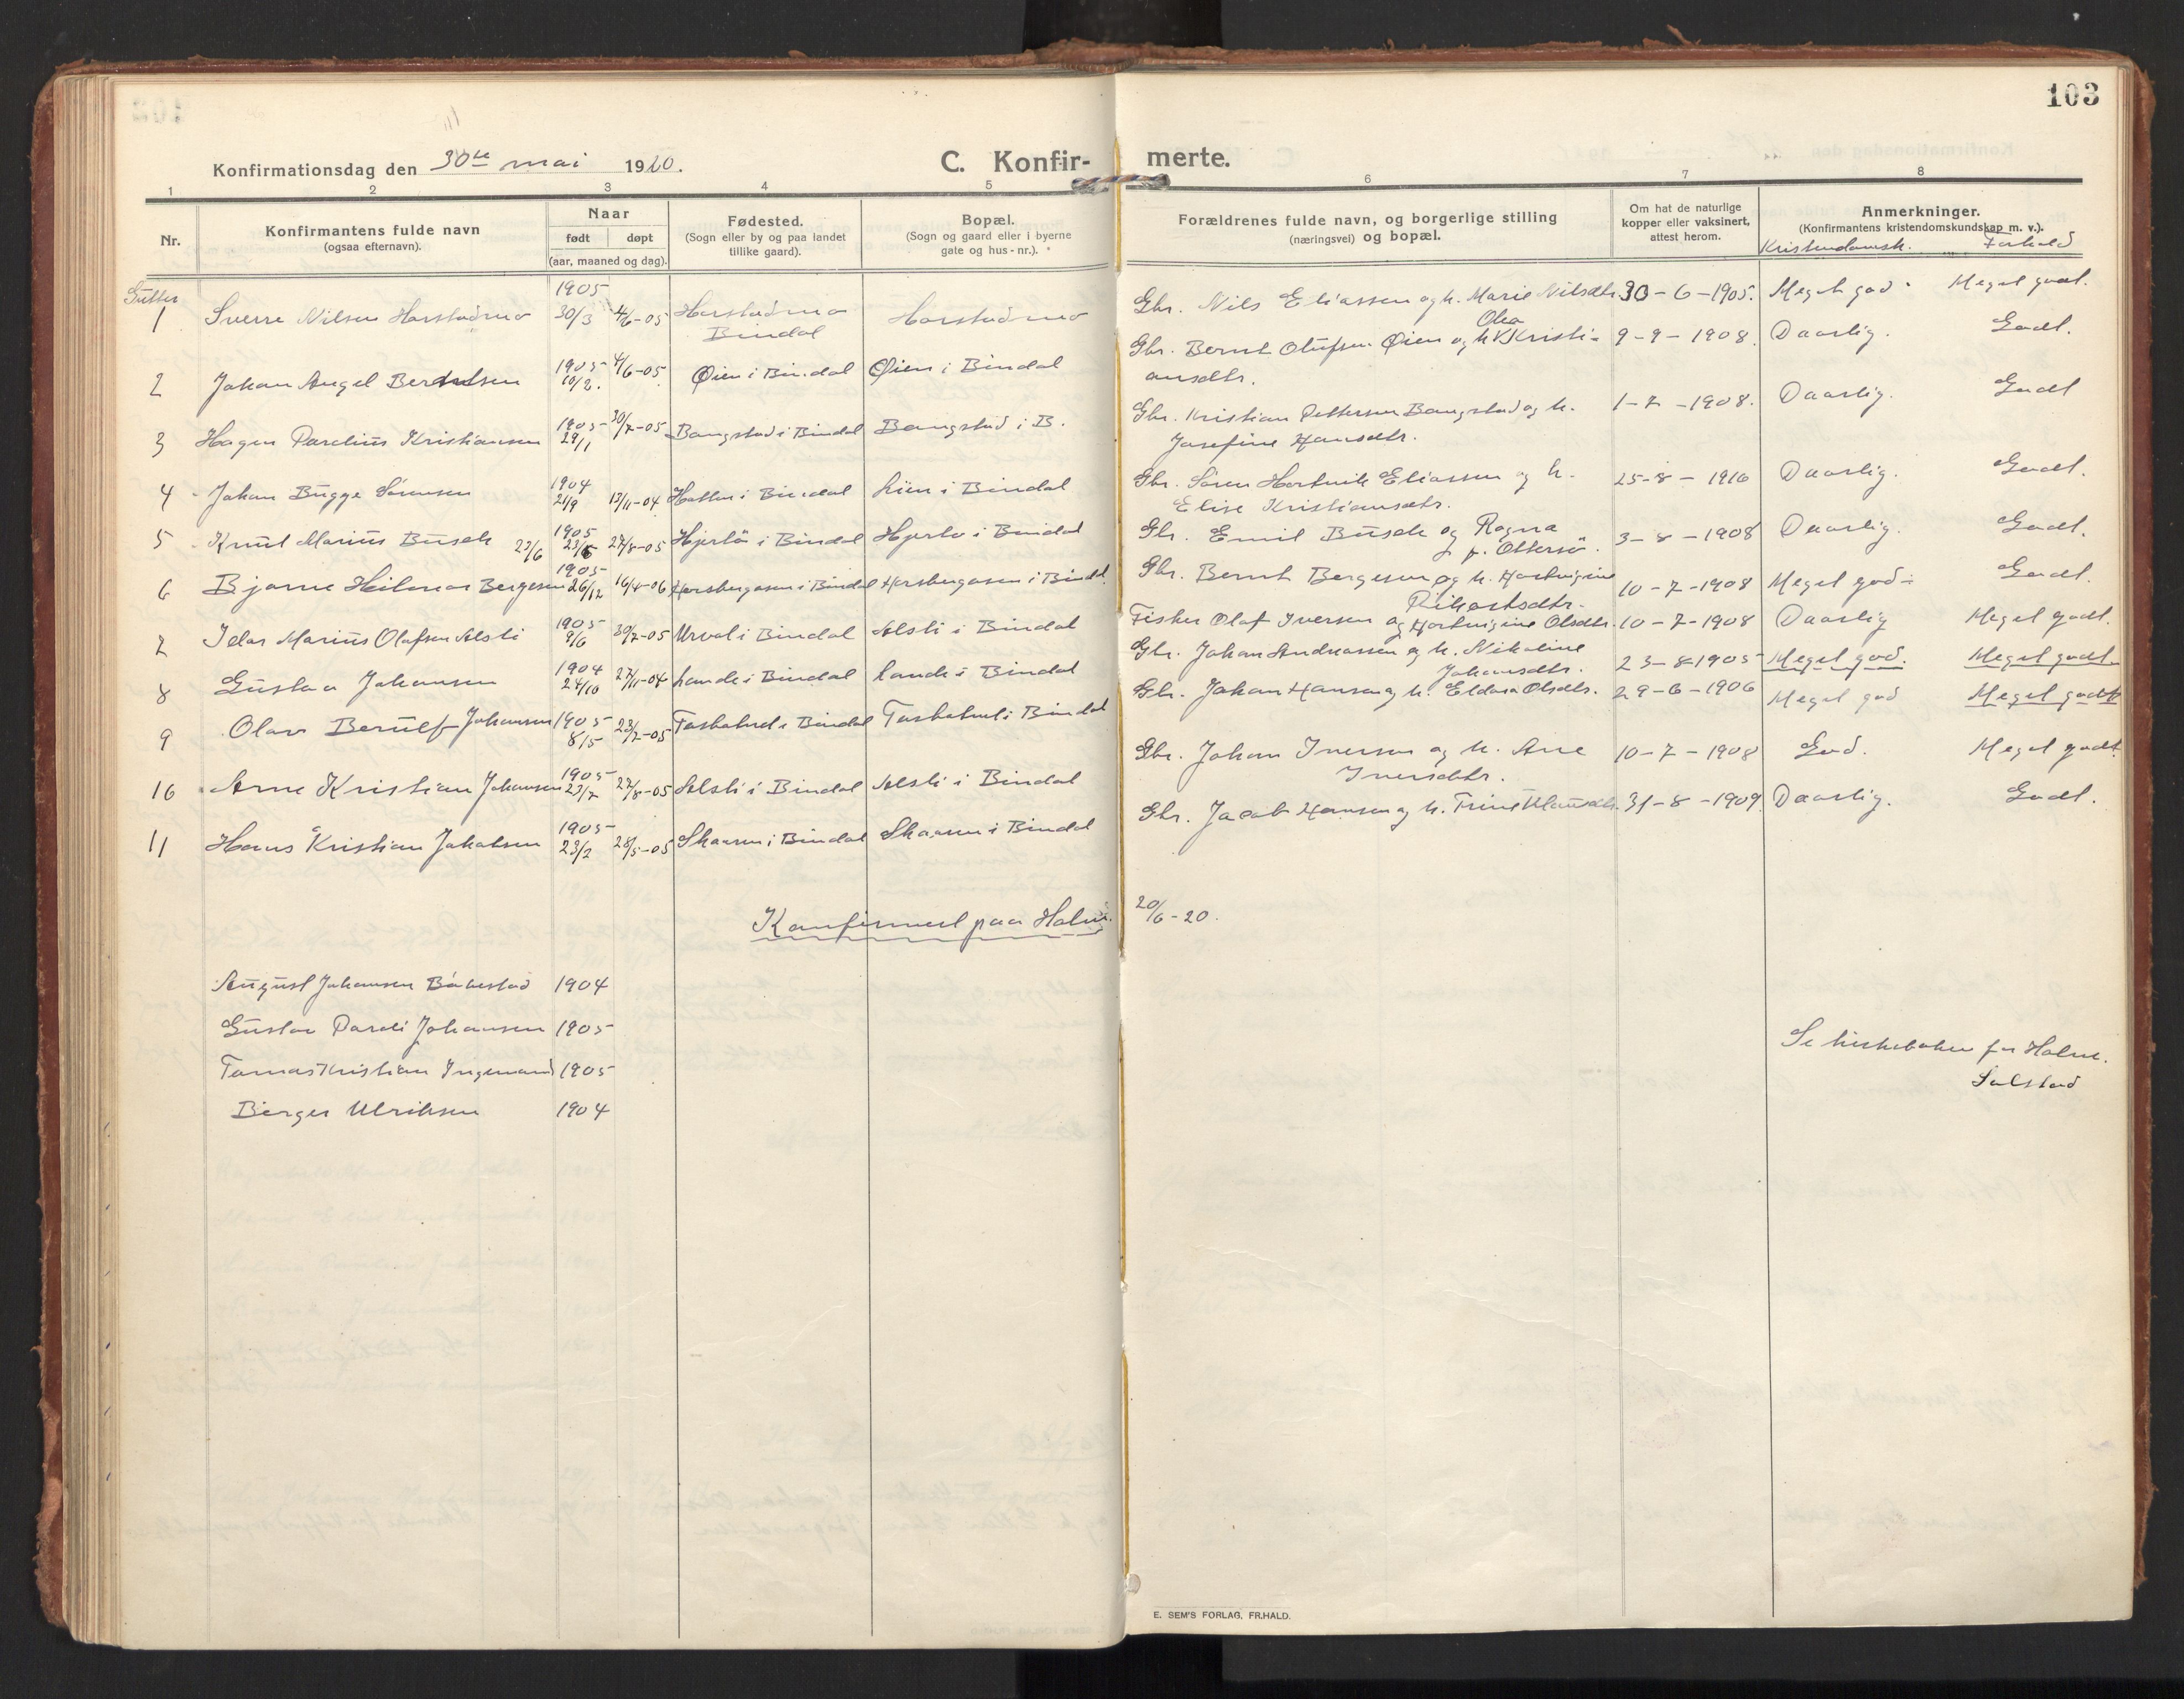 103
Konfirmationsdag den 30te mai 1920.
C. Konfir- merte.
1 2 3 4 5 6 7 8
Nr.
Konfirmantens fulde navn
(ogsaa efternavn).
Naar
født døpt
(aar, maaned og dag).
Fødested.
(Sogn eller by og paa landet
tillike gaard).
Bopæl.
(Sogn og gaard eller i byerne
gate og hus-nr.).
Forældrenes fulde navn, og borgerlige stilling
(næringsvei) og bopæl.
Om hat de naturlige
kopper eller vaksinert,
attest herom.
Anmerkninger.
(Konfirmantens kristendomskundskap m. v.).
Kristendomsk. Forhold
Gutter
1 Sverre Nilsen Horstadmo 1905 30/3 4/6-05 Horstadmo Bindal Horstadmo Gbr. Nils Eliassen og h. Marie Nilsdtr. 30-6-1905. Meget god. Meget godt.
2 Johan Angel Berntsen 1905 10/2. 4/6-05 Øien i Bindal Øien i Bindal Gbr. Bernt Olufsen Øien og h. Olea Kristi-
ansdtr. 9-9-1908. Daarlig. Godt.
3 Hagen Parelius Kristiansen 1905 29/1 30/7-05 Bangstad i Bindal Bangstad i B. Gbr. Kristian Pettersen Bangstad og h.
Josefine Hansdtr. 1-7-1908. Daarlig. Godt
4 Johan Bugge Sørensen 1904 21/9 13/11-04 Hatten i Bindal Lien i Bindal Gbr. Søren Hartvik Eliassen og h.
Elise Kristiansdtr. 25-8-1910 Daarlig. Godt.
5 Knut Marius Busch 23/6 1905 23/6 27/8-05 Hjertø i Bindal Hjertø i Bindal Gbr. Emil Busch og Ragna
f. Ottersø. 3-8-1908 Daarlig. Godt.
6 Bjarne Heilmar Bergesen 1905 26/12 16/4-06 Horsbergaasen i Bindal Horsbergaasen i Bindal Gbr. Bernt Bergesen og h. Hartvigine
Rikartsdtr. 10-7-1908 Meget god Godt.
7 Idar Marius Olafsen Alsli 1905 9/6 30/7-05 Urvol i Bindal Alsli i Bindal Fisker Olaf Iversen og Hartvigine Olsdtr. 10-7-1908 Daarlig Meget godt.
8 Gustav Johansen 1904 24/10 27/11-04 Lande i Bindal Lande i Bindal Gbr. Johan Andreassen og h. Nikoline
Johansdtr. 23-8-1905 Meget god. Meget godt
9 Olav Berulf Johansen 1905 8/5 23/7-05 Terraak i Bindal Gbr. Johan Hansen og h. Eldora Olsdtr. 29-6-1906 Meget god Meget godt
10 Arne Kristian Johansen 1905 23/7 27/8-05 Alsli i Bindal Alsli i Bindal Gbr. Johan Iversen og h. Ane
Iversdtr. 10-7-1908 God. Meget godt.
11 Hans Kristian Jakobsen 1905 23/2 28/5-05 Skaaren i Bindal Skaaren i Bindal Gbr. Jacob Hansen og h. Trine 31-8-1909. Daarlig. Godt.
Konfirmert paa Holm 20/6-20.
August Johansen Bøkestad 1904
Gustav Pareli Johansen 1905
Tomas Kristian Ingemand 1905
Berger Ulriksen 1904
Se kirkeboken for Holm.
Solstad
E. SEM'S FORLAG, FR.HALD.